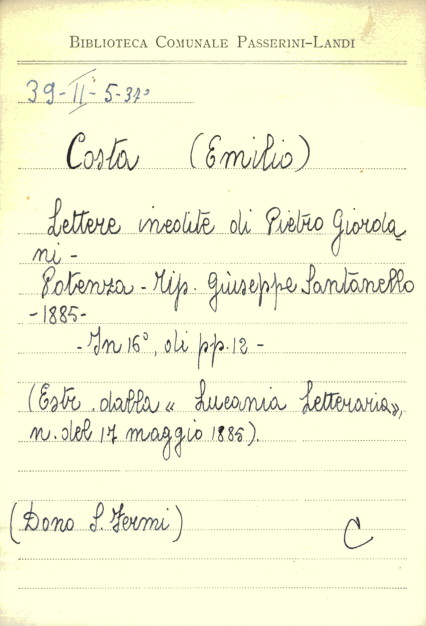 BIBLIOTECA COMUNALE PASSERINI-LANDI
39-II-5-31°
Costa (Emilio)
Lettere inedite di Pietro Giorda-
ni-
Potenza - Tip. Giuseppe Santanello
-1885-
- In 16°, di pp. 12 -
(Estr. dalla « Lucania Letteraria»,
n. del 17 maggio 1885).
(Dono S. Fermi)
C